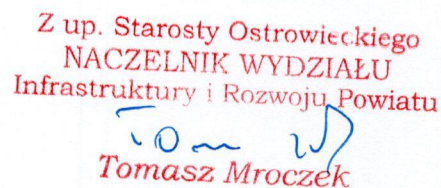 Z up. Starosty Ostrowieckiego
NACZELNIK WYDZIAŁU
Infrastruktury i Rozwoju Powiatu
Tomasz Mroczek